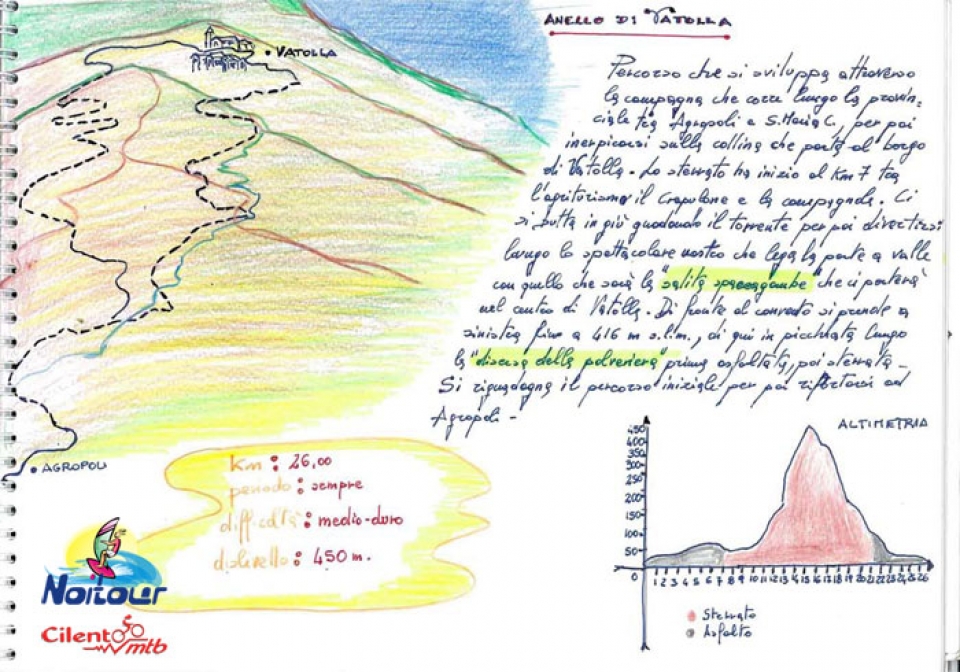 ANELLO DI VATOLLA
Percorso che si sviluppa attraverso
la campagna che corre lungo la provin-
ciale tra Agropoli e S. Maria C. per poi
inerpicarsi sulla collina che porta al borgo
di Vatolla. Lo sterrato ha inizio al Km 7 tra
l'agriturismo il Crapulone e la campagna. Ci
si butta in giù guadando il torrente per poi divertirsi
lungo lo spettacolare nastro che lega la parte a valle
con quello che sarà la "salita spaccagambe" che ci porterà
nel centro di Vatolla. Di fronte al convento si prende a
sinistra fino a 416 m s.l.m., di qui in picchiata lungo
la "discesa della polveriera" prima asfaltata, poi sterrata -
Si riguadagna il percorso iniziale per poi riportarsi ad
Agropoli -
VATOLLA
AGROPOLI
km : 26,00
periodo : sempre
difficoltà : medio-duro
dislivello : 450 m.
Noitour
Cilento mtb
ALTIMETRIA
450
400
350
300
250
200
150
100
50
0
1 2 3 4 5 6 7 8 9 10 11 12 13 14 15 16 17 18 19 20 21 22 23 24 25 26
Sterrato
Asfalto